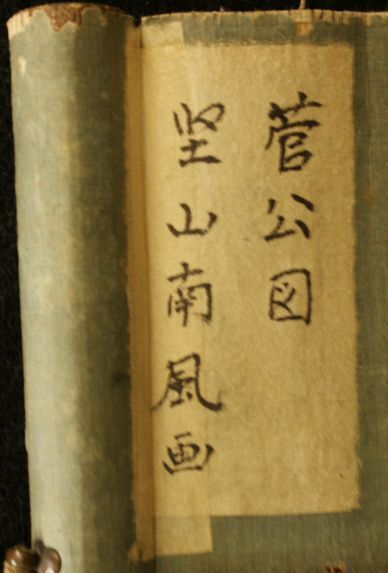 菅公図
堅山南風画